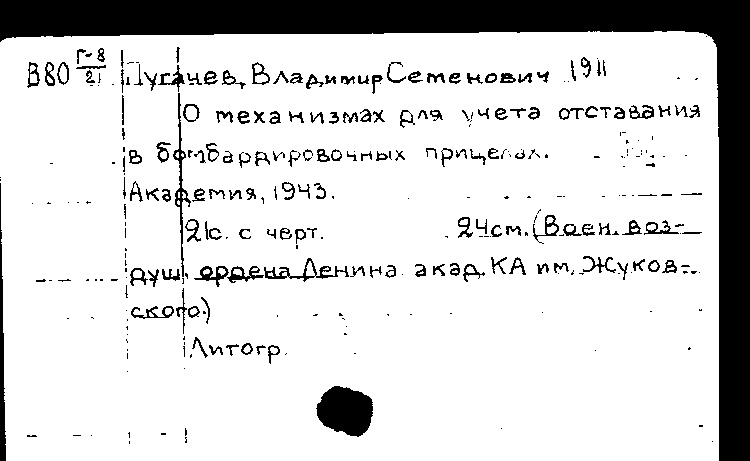 В80 Г-8/21 Пугачев, Владимир Семенович 1911
О механизмах для учета отставания
в бомбардировочных прицелах.
Академия, 1943.
21с. с черт. 24см. (Воен. воз-
душ. ордена Ленина акад. КА им. Жуков-
ского.)
Литогр.